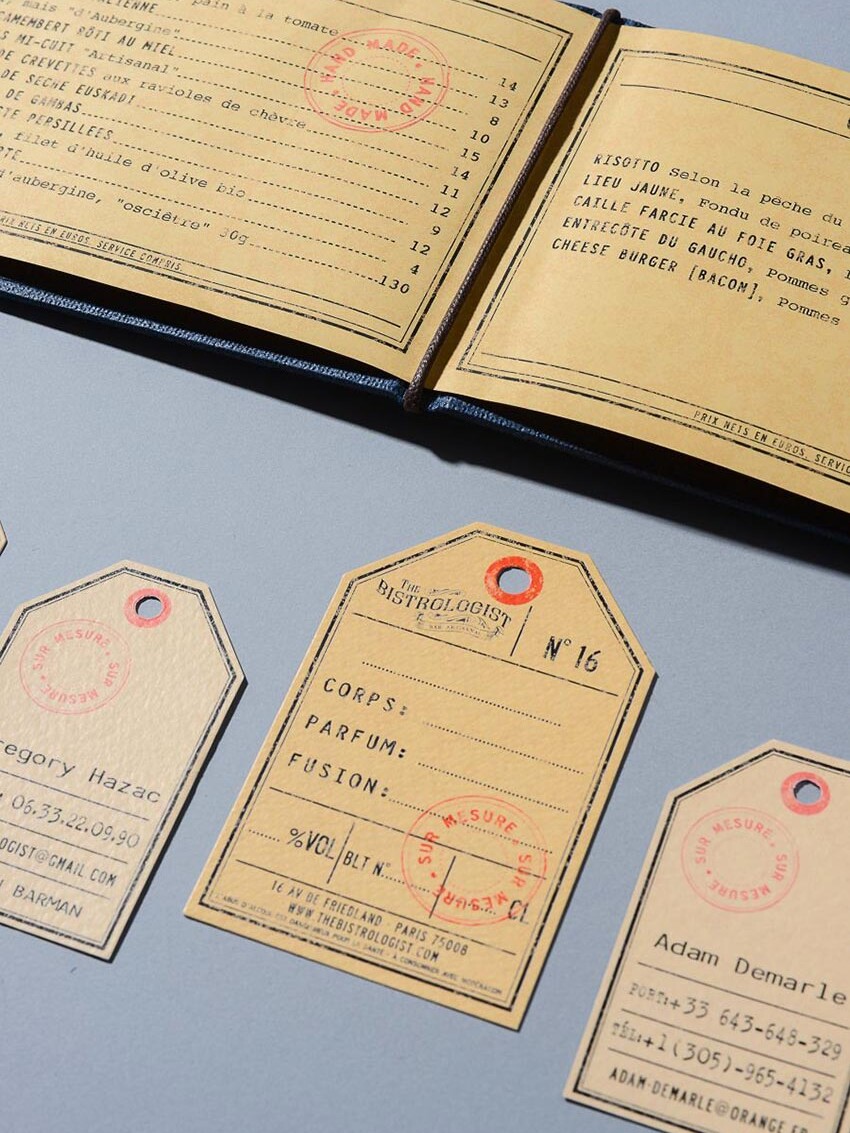 pain à la tomate
mais "d'Aubergine"
CAMEMBERT RÔTI AU MIEL
MI-CUIT "Artisanal"
DE CREVETTES aux ravioles de chèvre
DE SECHE EUSKADI
DE GAMBAS
PERSILLEES
filet d'huile d'olive bio
d'aubergine, "osciêtre" 30g
14
13
8
10
15
14
11
12
9
12
4
130
HAND MADE • HAND MADE •
PRIX NETS EN EUROS, SERVICE COMPRIS.
RISOTTO Selon la pêche du
LIEU JAUNE, Fondu de poirea
CAILLE FARCIE AU FOIE GRAS,
ENTRECÔTE DU GAUCHO, Pommes
CHEESE BURGER [BACON], Pommes
PRIX NETS EN EUROS, SERVIC
SUR MESURE • SUR MESURE •
egory Hazac
06.33.22.09.90
LOGIST@GMAIL.COM
BARMAN
THE
BISTROLOGIST
N° 16
CORPS:
PARFUM:
FUSION:
%VOL
BLT N°
CL
SUR MESURE • SUR MESURE •
16 AV DE FRIEDLAND - PARIS 75008
WWW.THEBISTROLOGIST.COM
L'ABUS D'ALCOOL EST DANGEREUX POUR LA SANTÉ - À CONSOMMER AVEC MODÉRATION
SUR MESURE • SUR MESURE •
Adam Demarle
PORT:+33 643-648-329
TÉL:+1(305)-965-4132
ADAM-DEMARLE@ORANGE.FR